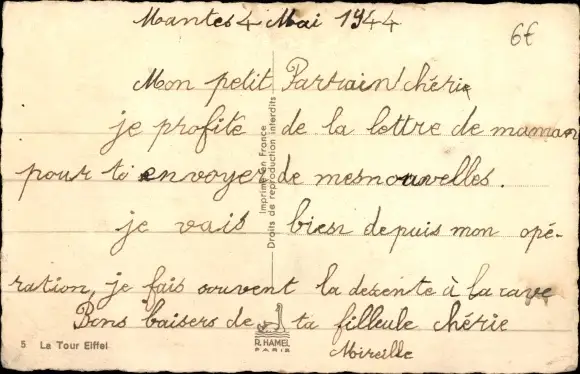 Mantes 4 Mai 1944
6€
Mon petit Parrain chérie
je profite de la lettre de maman
pour ti envoyer de mesnouvelles.
je vais bien depuis mon opé-
ration, je fais souvent la dezente à la cave
Bons baisers de ta filleule chérie
Mireille
Imprimé en France
Droits de reproduction interdits
R. HAMEL
PARIS
5 La Tour Eiffel